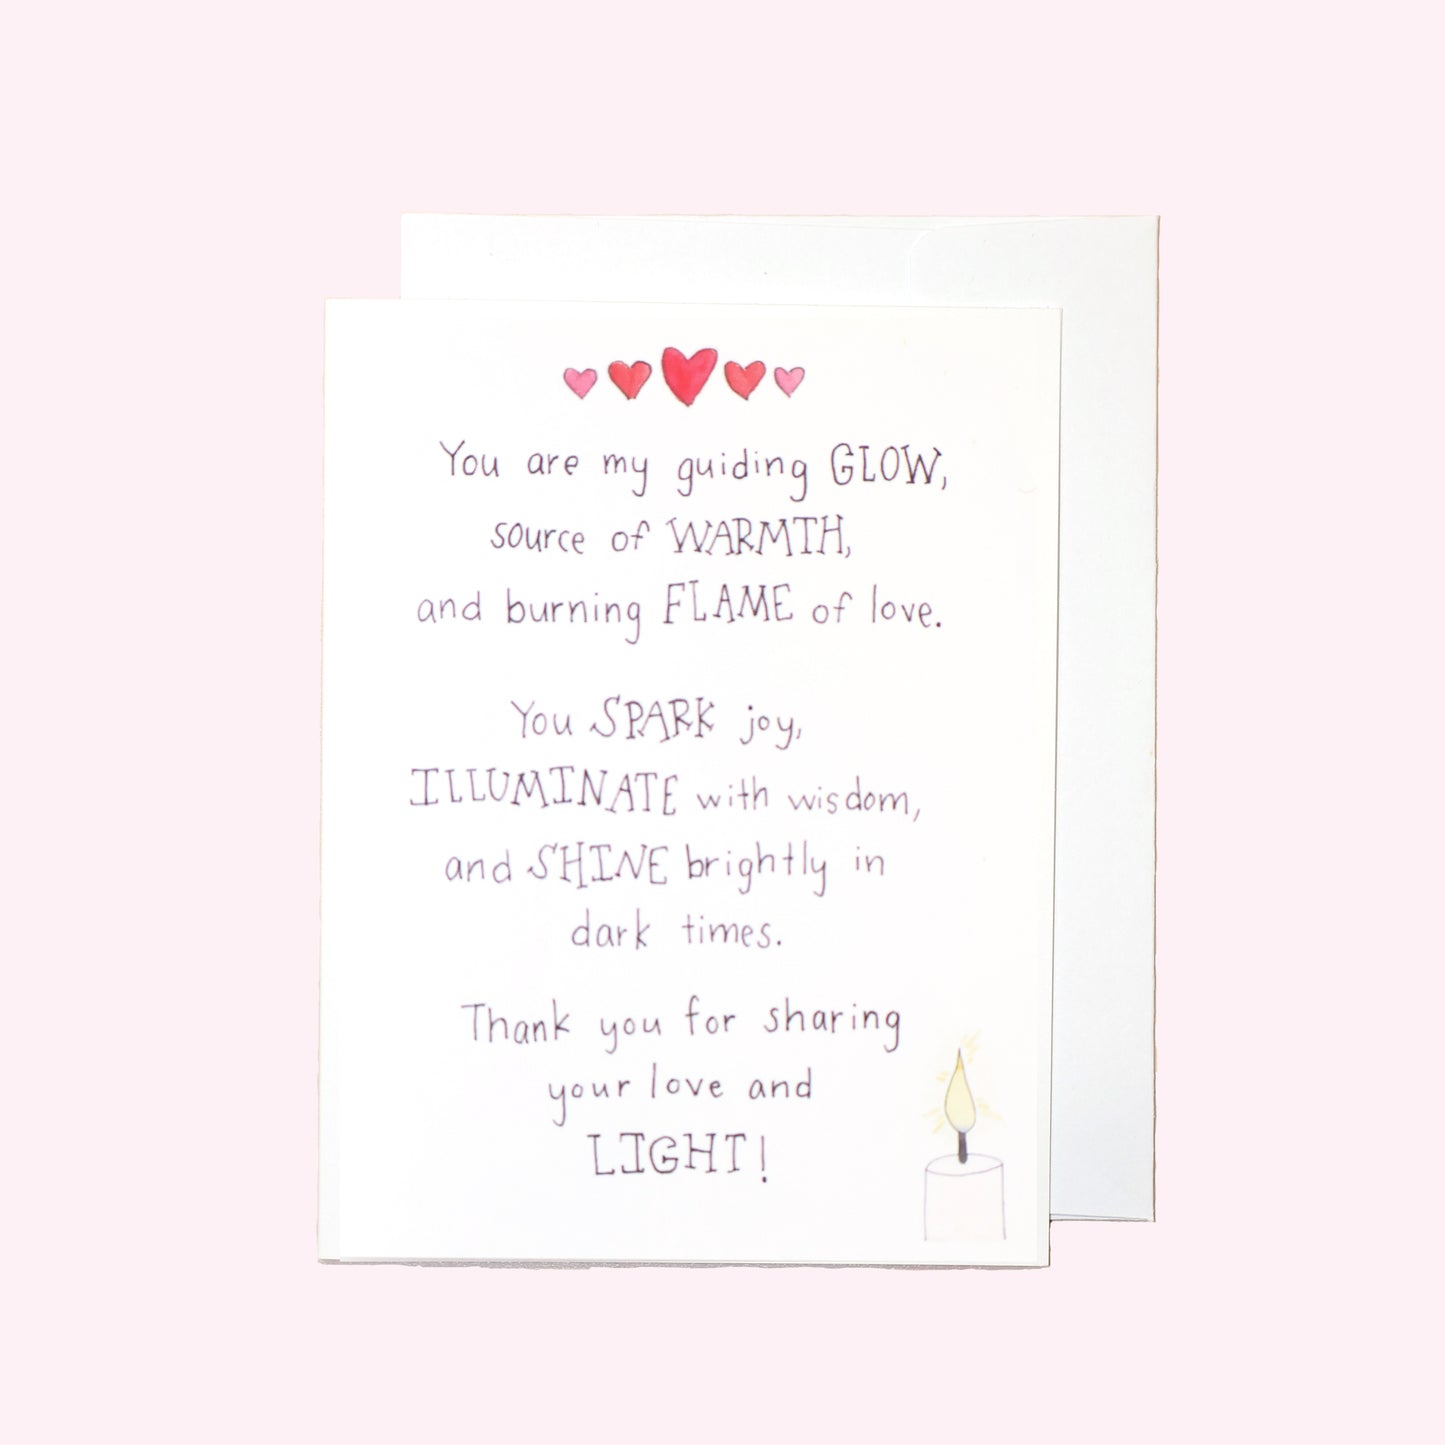 You are my guiding GLOW,
source of WARMTH,
and burning FLAME of love.
You SPARK joy,
ILLUMINATE with wisdom,
and SHINE brightly in
dark times.
Thank you for sharing
your love and
LIGHT!